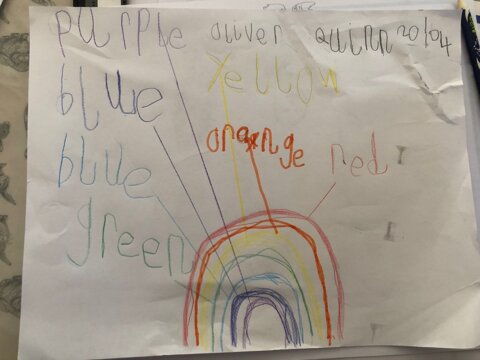 purple oliver quinn 20/04
blue yellow
blue orange red
green